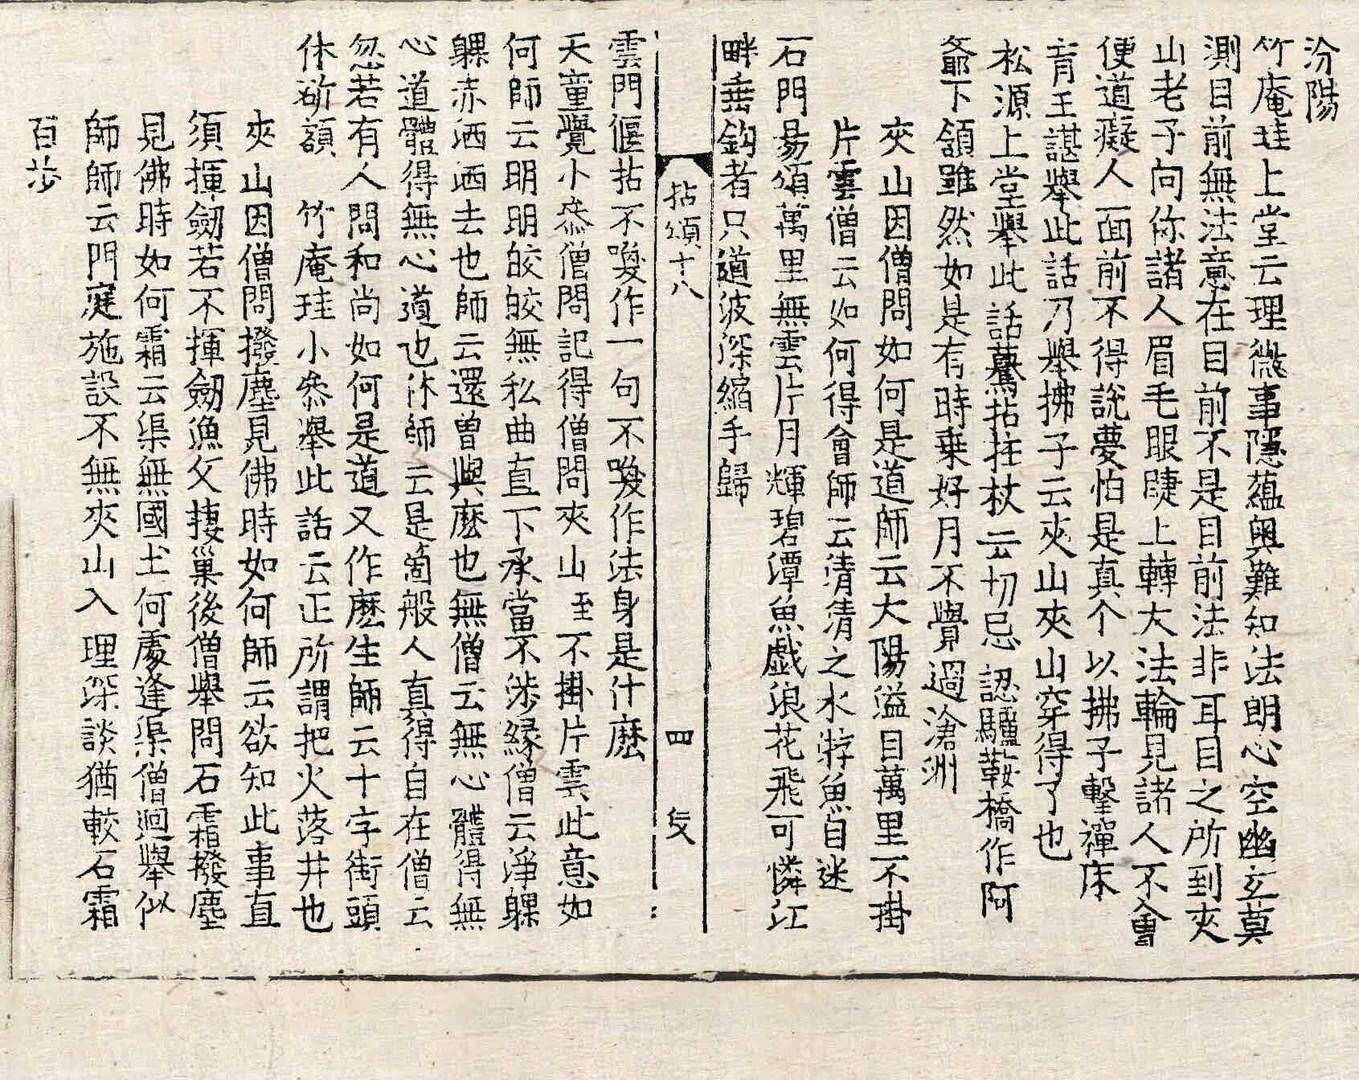 汾陽
竹庵珪上堂云理微事隱蘊奧難知法明心空幽玄莫
測目前無法意在目前不是目前法非耳目之所到夾
山老子向你諸人眉毛眼睫上轉大法輪見諸人不會
便道癡人面前不得說夢怕是真个以拂子擊禪床
育王諶舉此話乃舉拂子云夾山夾山穿得了也
松源上堂舉此話驀拈拄杖云切忌認驢鞍橋作阿
爺下頷雖然如是有時乗好月不覺過滄洲
夾山因僧問如何是道師云大陽溢目萬里不掛
片雲僧云如何得會師云清清之水㳺魚自迷
石門易頌萬里無雲片月輝碧潭魚戯浪花飛可憐江
畔垂鈎者只道波深縮手歸
拈頌十八 四
雲門偃拈不喚作一句不喚作法身是什麽
天童覺小叅僧問記得僧問夾山至不掛片雲此意如
何師云明明皎皎無私曲直下承當不渉縁僧云淨躶
躶赤洒洒去也師云還曽與麽也無僧云無心體得無
心道體得無心道也休師云是箇般人真得自在僧云
忽若有人問和尚如何是道又作麽生師云十字街頭
休斫額 竹庵珪小叅舉此話云正所謂把火落井也
夾山因僧問撥塵見佛時如何師云欲知此事直
須揮劒若不揮劒漁父棲巢後僧舉問石霜撥塵
見佛時如何霜云渠無國土何處逢渠僧迴舉似
師師云門庭施設不無夾山入理深談猶較石霜
百步